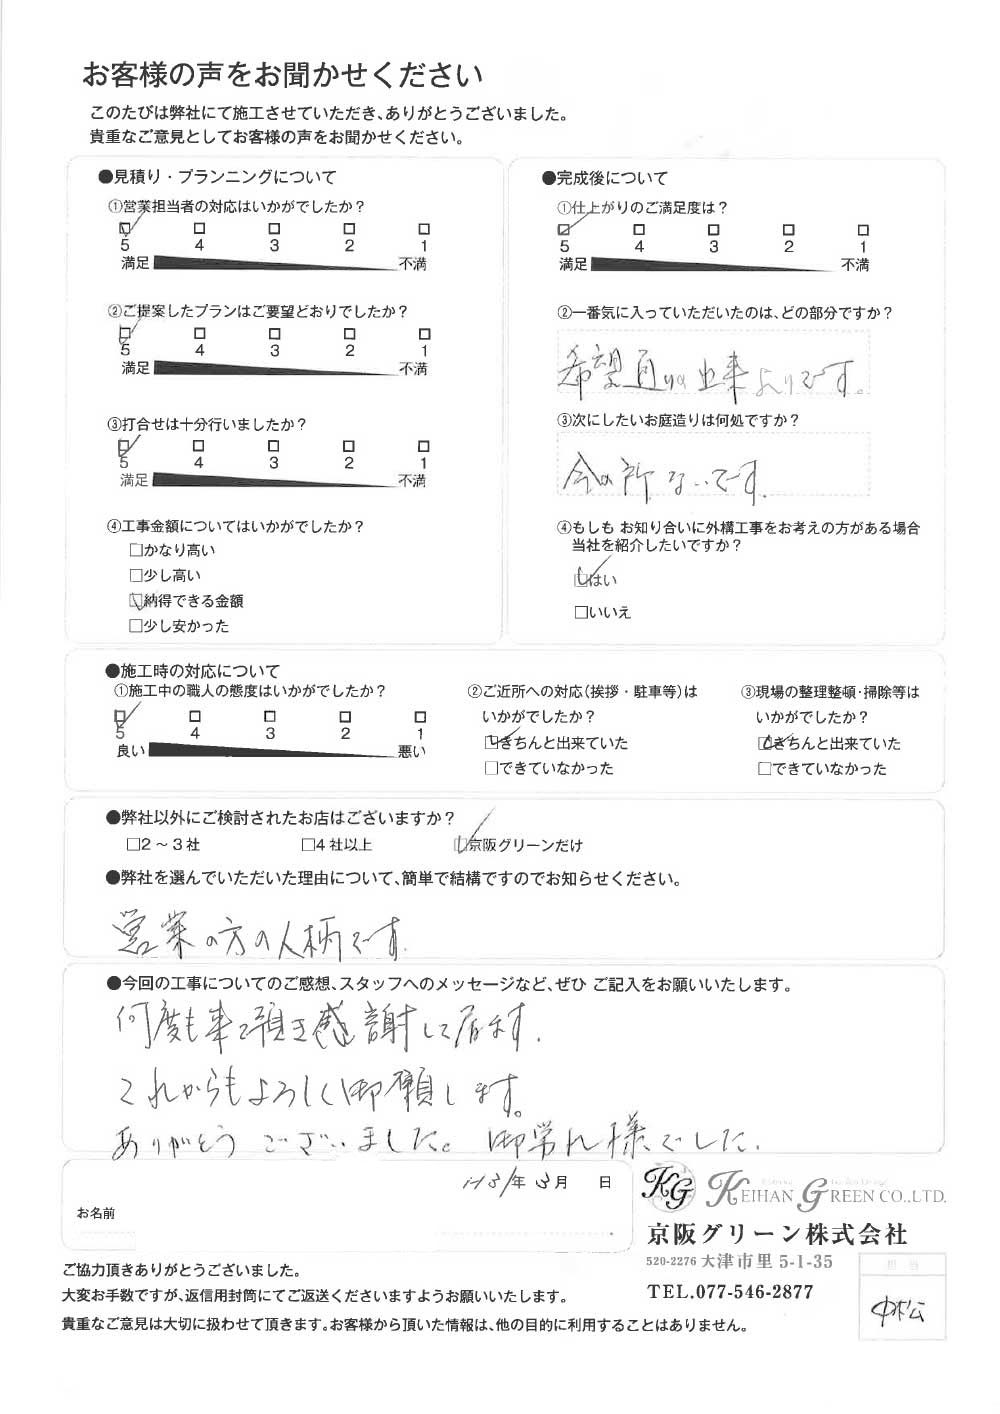 お客様の声をお聞かせください
このたびは弊社にて施工させていただき、ありがとうございました。
貴重なご意見としてお客様の声をお聞かせください。
●見積り・プランニングについて
①営業担当者の対応はいかがでしたか？
5 4 3 2 1
満足 不満
②ご提案したプランはご要望どおりでしたか？
5 4 3 2 1
満足 不満
③打合せは十分行いましたか？
5 4 3 2 1
満足 不満
④工事金額についてはいかがでしたか？
□かなり高い
□少し高い
☑納得できる金額
□少し安かった
●完成後について
①仕上がりのご満足度は？
5 4 3 2 1
満足 不満
②一番気に入っていただいたのは、どの部分ですか？
希望通りの出来上りです。
③次にしたいお庭造りは何処ですか？
今の所ないです。
④もしも お知り合いに外構工事をお考えの方がある場合
当社を紹介したいですか？
☑はい
□いいえ
●施工時の対応について
①施工中の職人の態度はいかがでしたか？
5 4 3 2 1
良い 悪い
②ご近所への対応（挨拶・駐車等）は
いかがでしたか？
☑きちんと出来ていた
□できていなかった
③現場の整理整頓・掃除等は
いかがでしたか？
☑きちんと出来ていた
□できていなかった
●弊社以外にご検討されたお店はございますか？
□2～3社 □4社以上 ☑京阪グリーンだけ
●弊社を選んでいただいた理由について、簡単で結構ですのでお知らせください。
営業の方の人柄です。
●今回の工事についてのご感想、スタッフへのメッセージなど、ぜひ ご記入をお願いいたします。
何度も来て頂き感謝して居ます。
これからもよろしく御願します。
ありがとうございました。御労れ様でした。
H31年3月 日
お名前
KG KEIHAN GREEN CO.,LTD.
京阪グリーン株式会社
520-2276 大津市里 5-1-35
TEL.077-546-2877
担当
中松
ご協力頂きありがとうございました。
大変お手数ですが、返信用封筒にてご返送くださいますようお願いいたします。
貴重なご意見は大切に扱わせて頂きます。お客様から頂いた情報は、他の目的に利用することはありません。